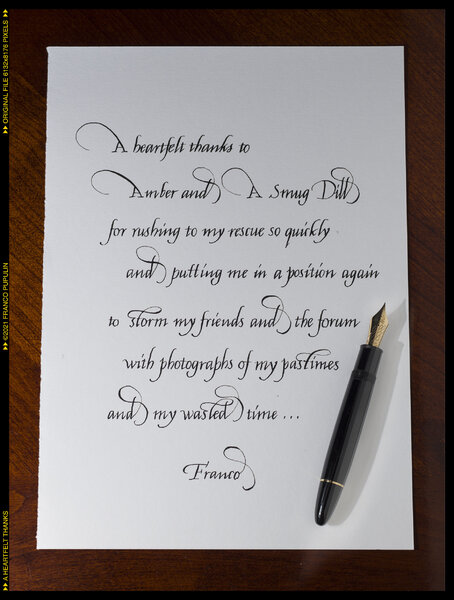 A heartfelt thanks to
Amber and A Smug Dill
for rushing to my rescue so quickly
and putting me in a position again
to storm my friends and the forum
with photographs of my pastimes
and my wasted time ...
Franco
A HEARTFELT THANKS
©2021 FRANCO PUPULIN
ORIGINAL FILE 6132x8176 PIXELS